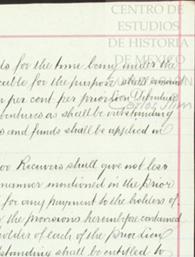 CENTRO DE
ESTUDIOS
DE HISTORIA
DE MEXICO
ds for the time being under the
cable for the purpose shall
per cent per prior lien
bentures as shall be outstanding
s and funds shall be applied in
or Receivers shall give not less
manner mentioned in the prior
for any payment to the holders of
the provisions hereinbefore contained
holder of each of the prior lien
tstanding shall be entitled to